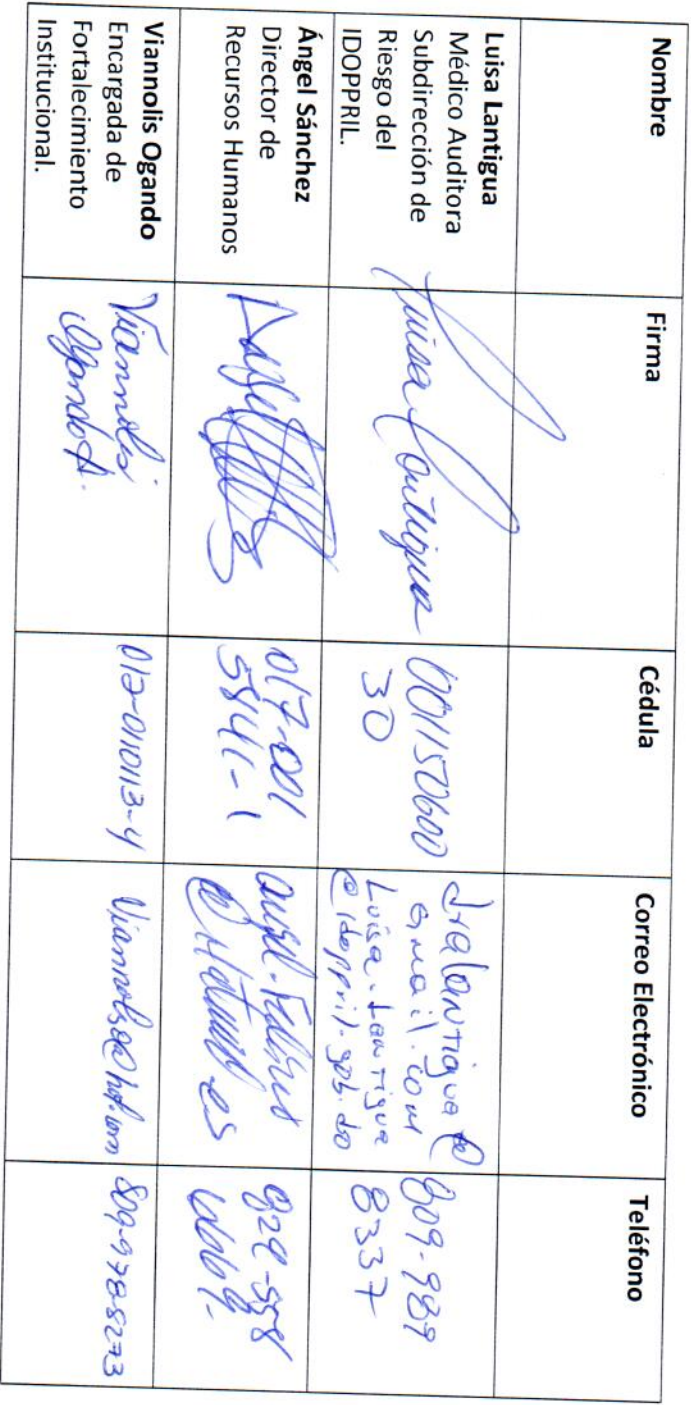 Nombre Firma Cédula Correo Electrónico Teléfono
Luisa Lantigua
Médico Auditora
Subdirección de
Riesgo del
IDOPPRIL.
Luisa Lantigua
0011150600
30
dralantigua@
gmail.com
Luisa.Lantigua
@idoppril.gob.do
809-989
8337
Ángel Sánchez
Director de
Recursos Humanos
017-001
5841-1
829-558
Viannolis Ogando
Encargada de
Fortalecimiento
Institucional.
Viannolis
Ogando A.
012-0110113-4
809-978-8273